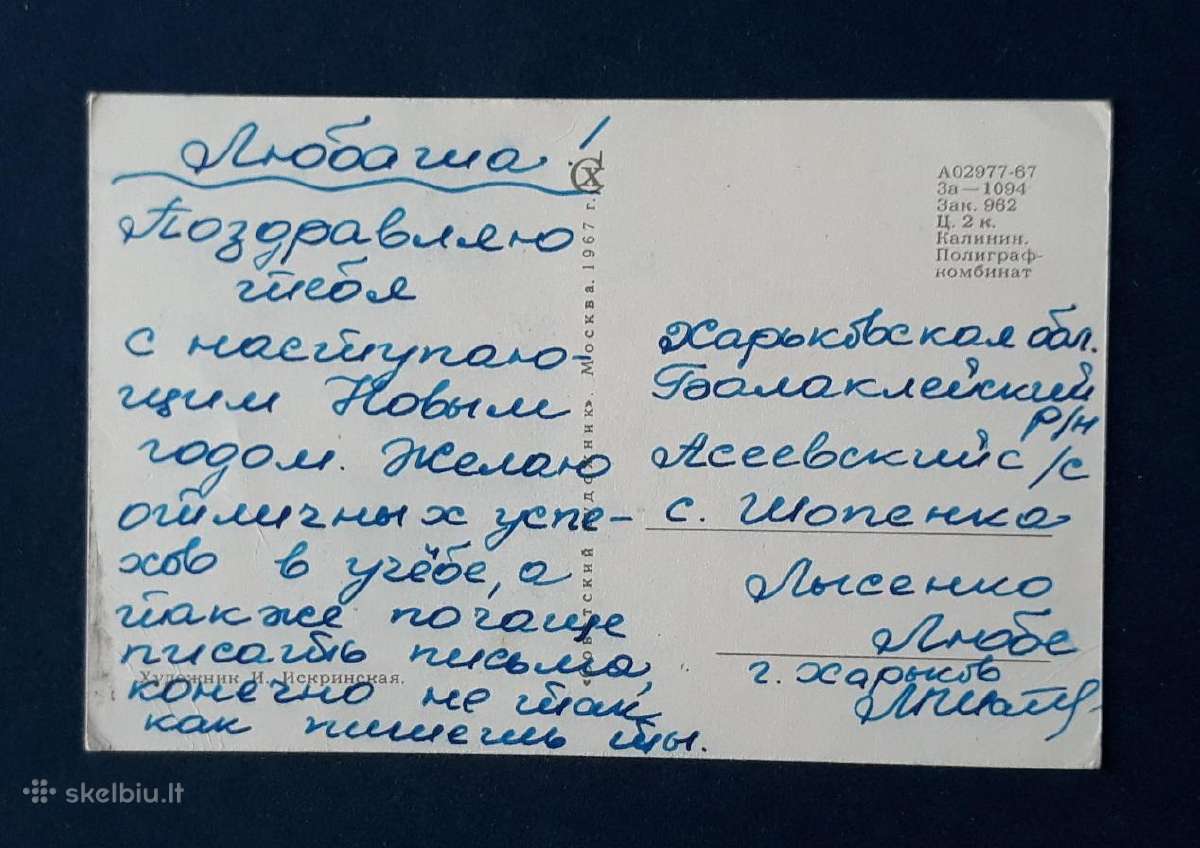 Любаша!
Поздравляю
тебя
с наступаю-
щим Новым
годом. Желаю
отличных успе-
хов в учёбе, а
также почаще
писать письма,
конечно не так,
как пишешь ты.
Художник И. Искринская.
«Советский художник». Москва. 1967 г.
А02977-67
За—1094
Зак. 962
Ц. 2 к.
Калинин.
Полиграф-
комбинат
Харьковская обл.
Балаклейский
р/н
Асеевский с/с
с. Шопенка
Лысенко
Любе
г. Харьков
skelbiu.lt